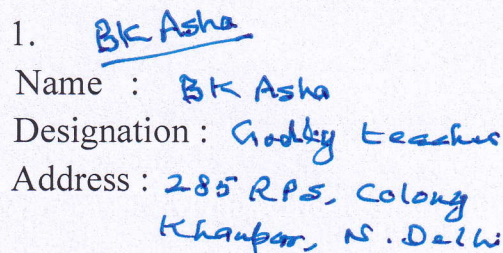 1. BK Asha
Name : BK Asha
Designation : Godly teacher
Address : 285 RPS, Colony
Khanpur, N. Delhi